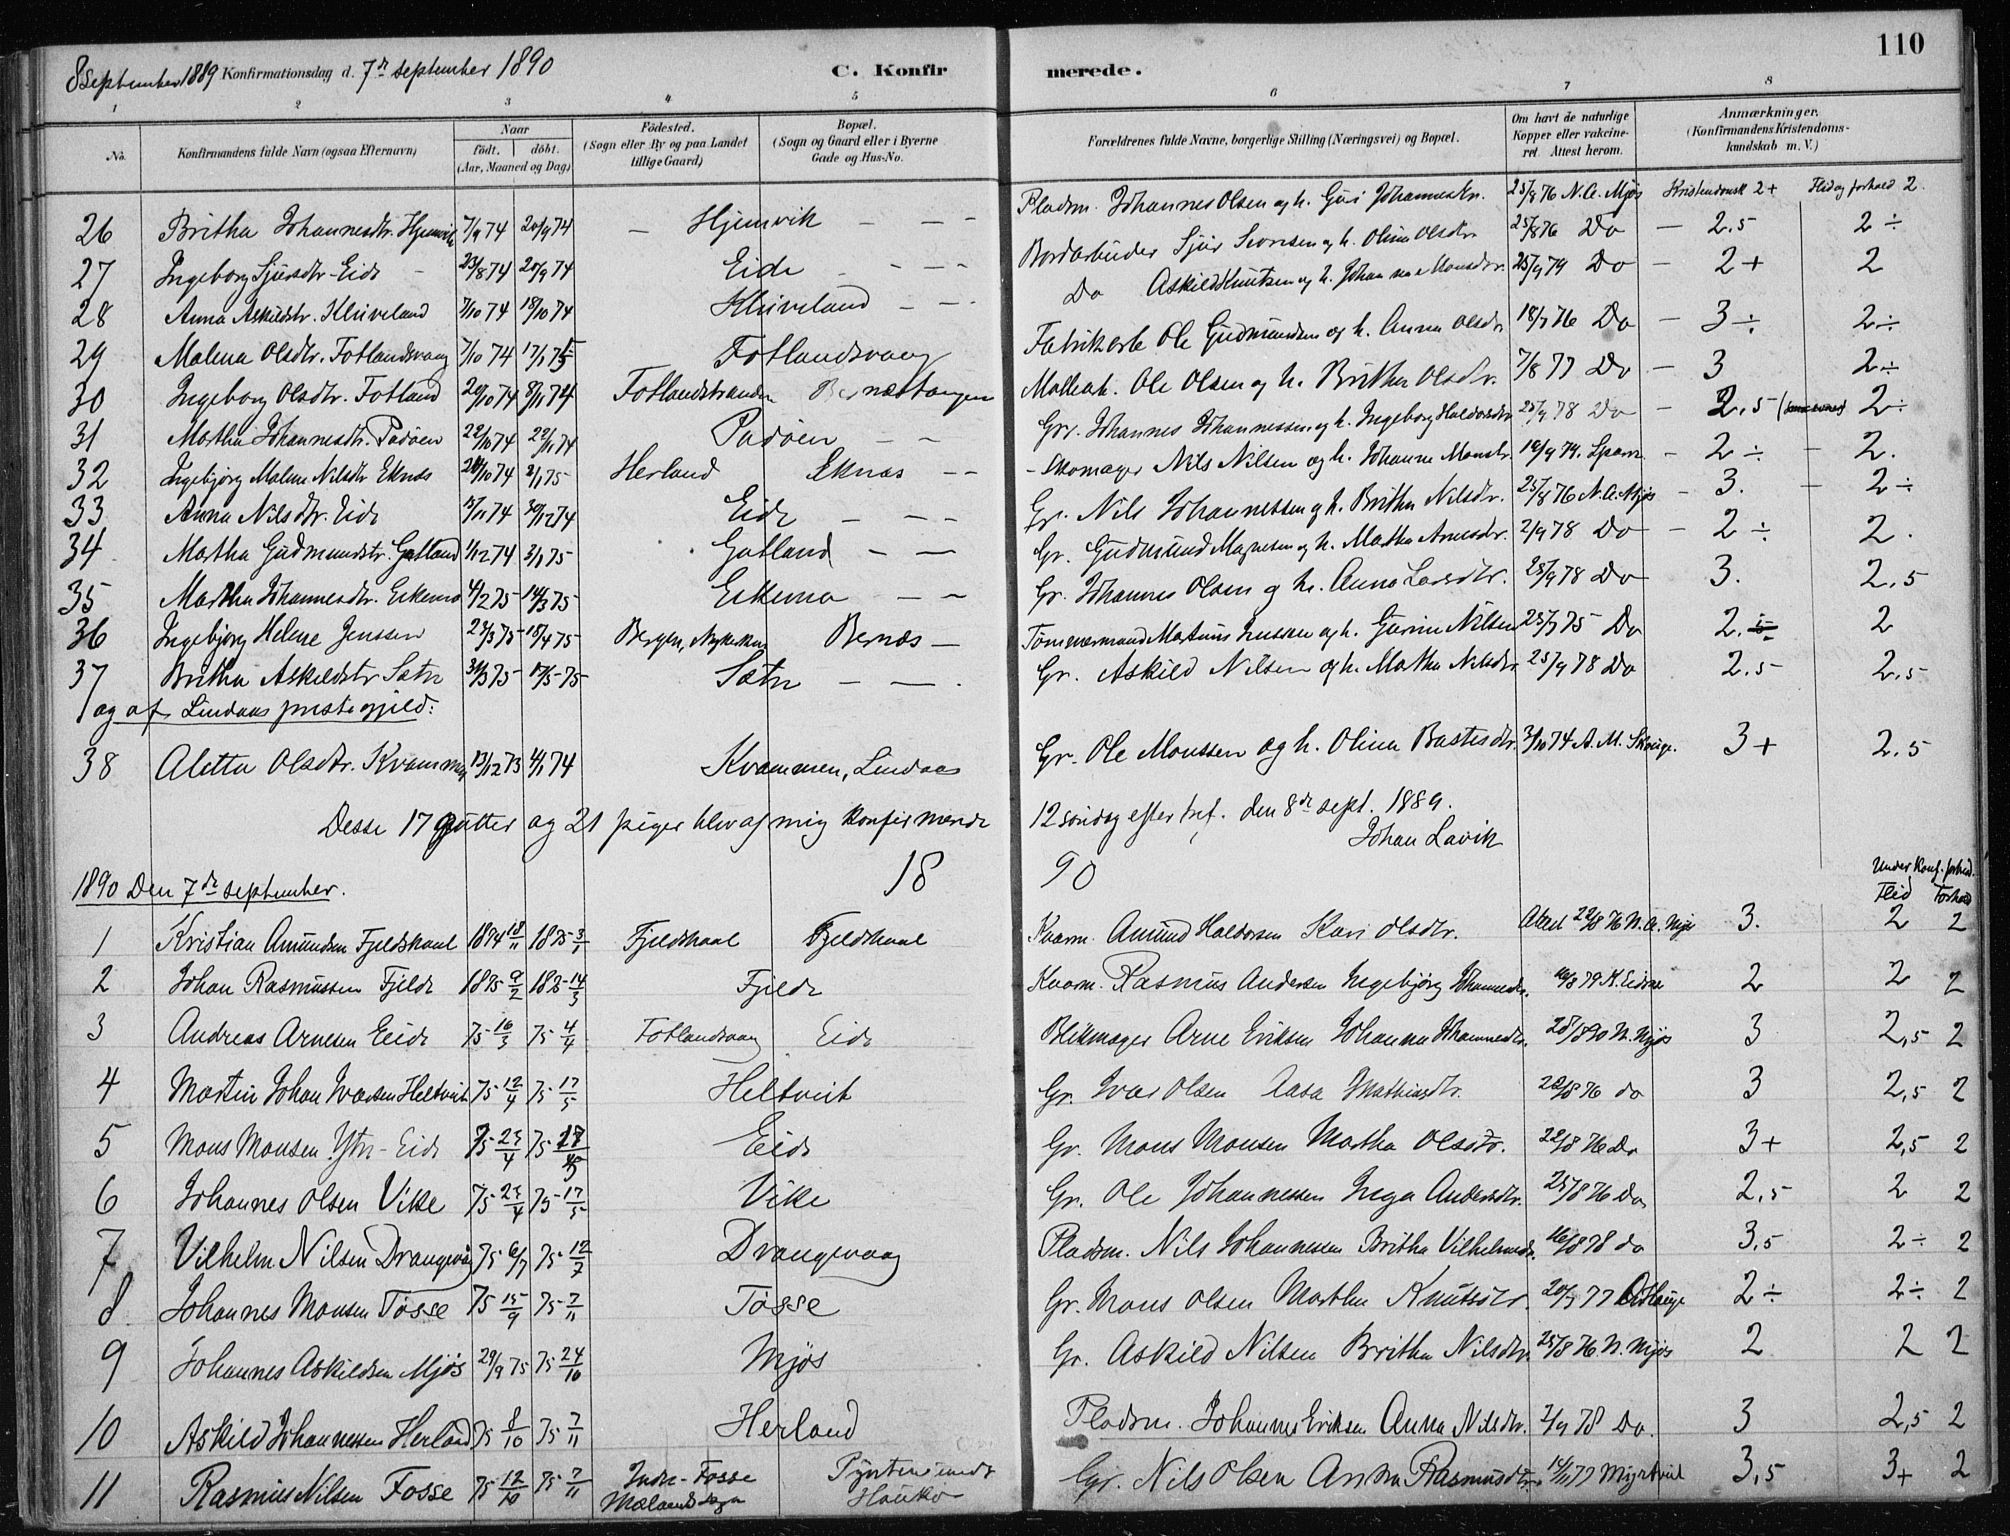 110
8 September 1889 Konfirmationsdag d. 7de september 1890 C. Konfirmerede.
1 2 3 4 5 6 7 8
No. Konfirmandens fulde Navn (ogsaa Efternavn) Naar født. døbt. (Aar, Maaned og Dag) Fødested. (Sogn eller By og paa Landet tillige Gaard) Bopæl. (Sogn og Gaard eller i Byerne Gade og Hus-No. Forældrenes fulde Navne, borgerlige Stilling (Næringsvei) og Bopæl. Om havt de naturlige Kopper eller vakcineret. Attest herom. Anmærkninger. (Konfirmandens Kristendomskundskab m. V.)
26 Britha Johannesdtr. Hjemvik 7/9 74 20/9 74 – Hjemvik – – – Pladsm. Johannes Olsen og h. Guri Johannesdr. 25/8 76 N. A. Mjøs Kristendomsk 2+ Flid og forhold 2.
27 Ingeborg Sjursdtr. Eide 23/8 74 20/9 74 Eide – – – Bordarbeider Sjur Iversen og h. Olina Olsdtr. 25/8 76 Do – 2.5 2 ÷
28 Anna Askildstr. Kleiveland 7/10 74 18/10 74 Kleiveland – – Do Askild Knutsen og h. Johanna Monsdtr. 25/9 79 Do – 2+ 2
29 Malena Olsdtr. Fotlandsvaag 7/10 74 17/1 75 Fotlandsvaag Fabrikarb. Ole Gudmundsen og h. Anna Olsdr. 18/7 76 Do – 3 ÷ 2 ÷
30 Ingeborg Olsdtr. Fotland 20/10 74 8/11 74 Fotlandstranden Bernæstangen Ole Olsen og h. Britha Olsdtr. 7/8 77 Do – 3 2 ÷
31 Martha Johannesdtr. Padøen 22/10 74 22/11 74 Padøen – – Gr. Johannes Johannessen og h. Ingeborg Haldorsdtr. 25/9 78 Do – 2.5 2 ÷
32 Ingebjørg Malene Nilsdtr. Eknæs 24/10 74 2/1 75 Herland Eknæs – – Skomager Nils Nilsen og h. Johanne Monsdr. 19/9 79. – 2 ÷ – 2.
33 Anna Nilsdtr. Eide 15/11 74 30/12 74 Eide – – – Gr. Nils Johannessen og h. Britha Nilsdtr. 25/8 76 N. A. Mjøs – 3. – 2 ÷
34 Martha Gudmundstr. Gatland 1/12 74 3/1 75 Gatland – – Gr. Gudmund Magnesen og h. Martha Arnesdr. 2/9 78 Do – 2 ÷ 2.
35 Martha Johannesdtr. Eikemo 4/2 75 14/3 75 Eikemo – – Gr. Johannes Olsen og h. Anna Larsdtr. 25/9 78 Do 3. 2.5
36 Ingebjørg Helene Jenssen 23/3 75 18/4 75 Bergen, Nykirken Bernæs – Tømmermand Martinus Jenssen og h. Gurine Nilsen 25/7 75 Do 2. 2
37 Britha Askildstr Sætre 31/3 75 17/5 75 Sætre – – Gr. Askild Nilsen og h. Martha Nilsdtr. 25/9 78 Do 2.5 2.5
og af Lindaas prestegjeld:
38 Aletta Olsdtr. Kvammen 13/12 73 4/1 74 Kvammen, Lindaas Gr. Ole Monssen og h. Olina Bastesdtr. 3/10 74 A. M. Skauge. 3+ 2.5
Desse 17 gutter og 21 piger blev af mig konfirmerede 12 søndag efter tref. den 8de sept. 1889.
Johan Lavik
18 90
1890 Den 7de september. Under konf. forbed. Flid Forhold
1 Kristian Amundsen Fjeldskaal 1874 18/11 1875 3/1 Fjeldskaal Fjeldskaal Kvarm. Amund Haldorsen Kari Olsdtr. Attest 22/8 76 N. A. Mjøs 3. 2 2
2 Johan Rasmussen Fjelde 1875 9/2 1875 14/3 Fjelde Kvarm. Rasmus Andersen Ingebjørg Johannesdr. 10/8 79 K. Eidsnes 2 2 2
3 Andreas Arnesen Eide 75 16/3 75 4/4 Fotlandsvaag Eide Blikmager Arne Eriksen Johanna Johannesdtr. 28/8 90 N. Mjøs 3 2,5 2
4 Martin Johan Ivarsen Heltveit 75 12/4 75 17/5 Heltveit Gr. Ivar Olsen Aasa Mathiasdtr. 22/8 76 do 3 2,5 2
5 Mons Monsen Ytre-Eide 75 25/4 75 17/5 Eide Gr. Mons Monsen Martha Olsdtr. 22/8 76 Do 3+ 2,5 2
6 Johannes Olsen Vike 75 25/4 75 17/5 Vike Gr. Ole Johannessen Inga Andersdtr. 25/8 76 Do 2,5 2 2
7 Vilhelm Nilsen Drangevaag 75 6/7 75 12/7 Drangevaag Pladsm. Nils Johannessen Britha Vilhelmsdr. 16/8 78 do 3,5 2 ÷ 2
8. Johannes Monsen Tøsse 75 15/9 75 7/11 Tøsse Gr. Mons Olsen Martha Knutsdtr. 20/7 77 2 ÷ 2 ÷ 2
9 Johannes Askildsen Mjøs 29/9 75 75 24/10 Mjøs Gr. Askild Nilsen Britha Nilsdtr. 25/8 76 N. Mjøs 2 2 2
10 Askild Johannessen Herland 75 8/10 75 7/11 Herland Pladsm. Johannes Eriksen Anna Nilsdtr. 2/9 78 Do. 3 2,5 2
11 Rasmus Nilsen Fosse 75 12/10 75 7/11 Indre-Fosse Mælandssogn Hauko Gr. Nils Olsen Anna Rasmusdtr. 14/11 77 Myrtveit 3,5 3+ 2